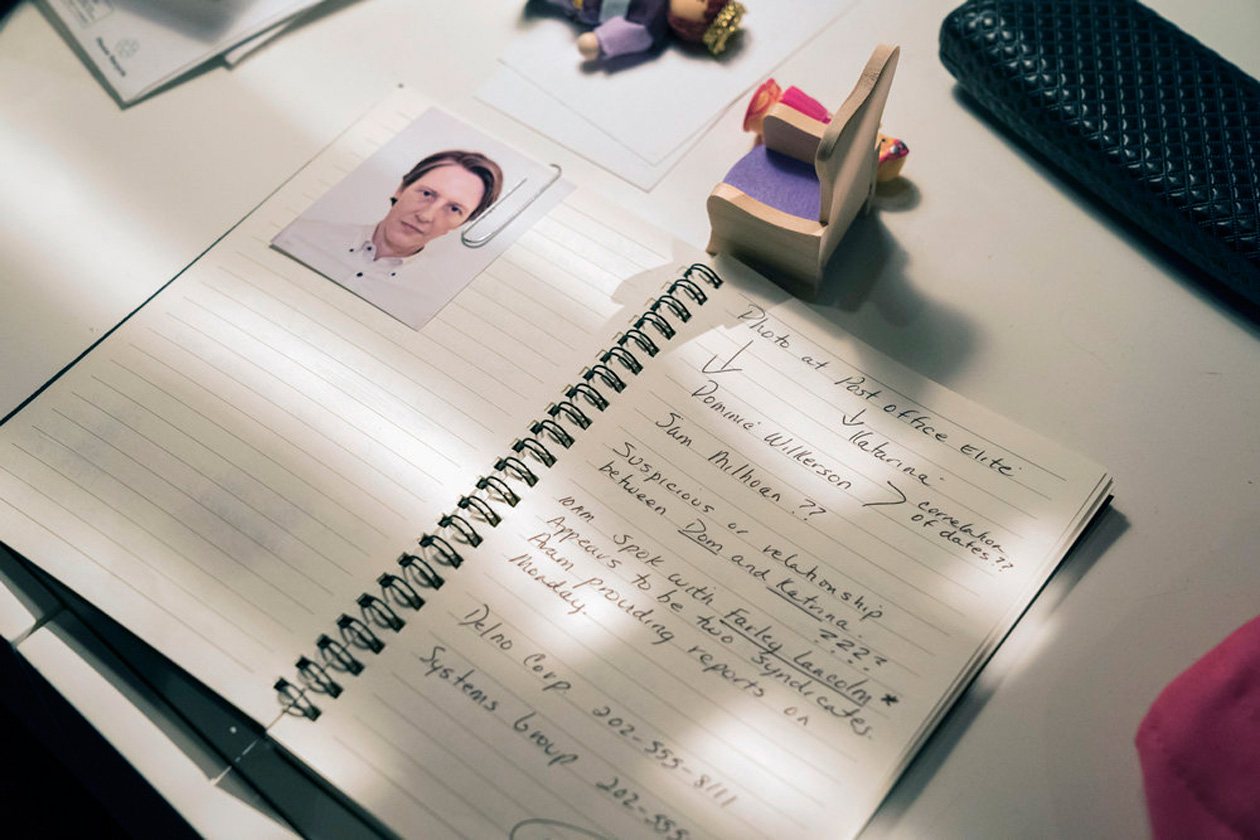 Photo at Post office Elite
Katarina
Dominic Wilkerson
correlation
of dates??
Sam Milhoan ??
Suspicious or relationship
between Dom and Katrina.
????
10AM Spok with Farley Lancolm *
Appears to be two syndicates.
Aram prouding reports on
Monday.
Delno Corp 202-555-8111
Systems Group 202-555